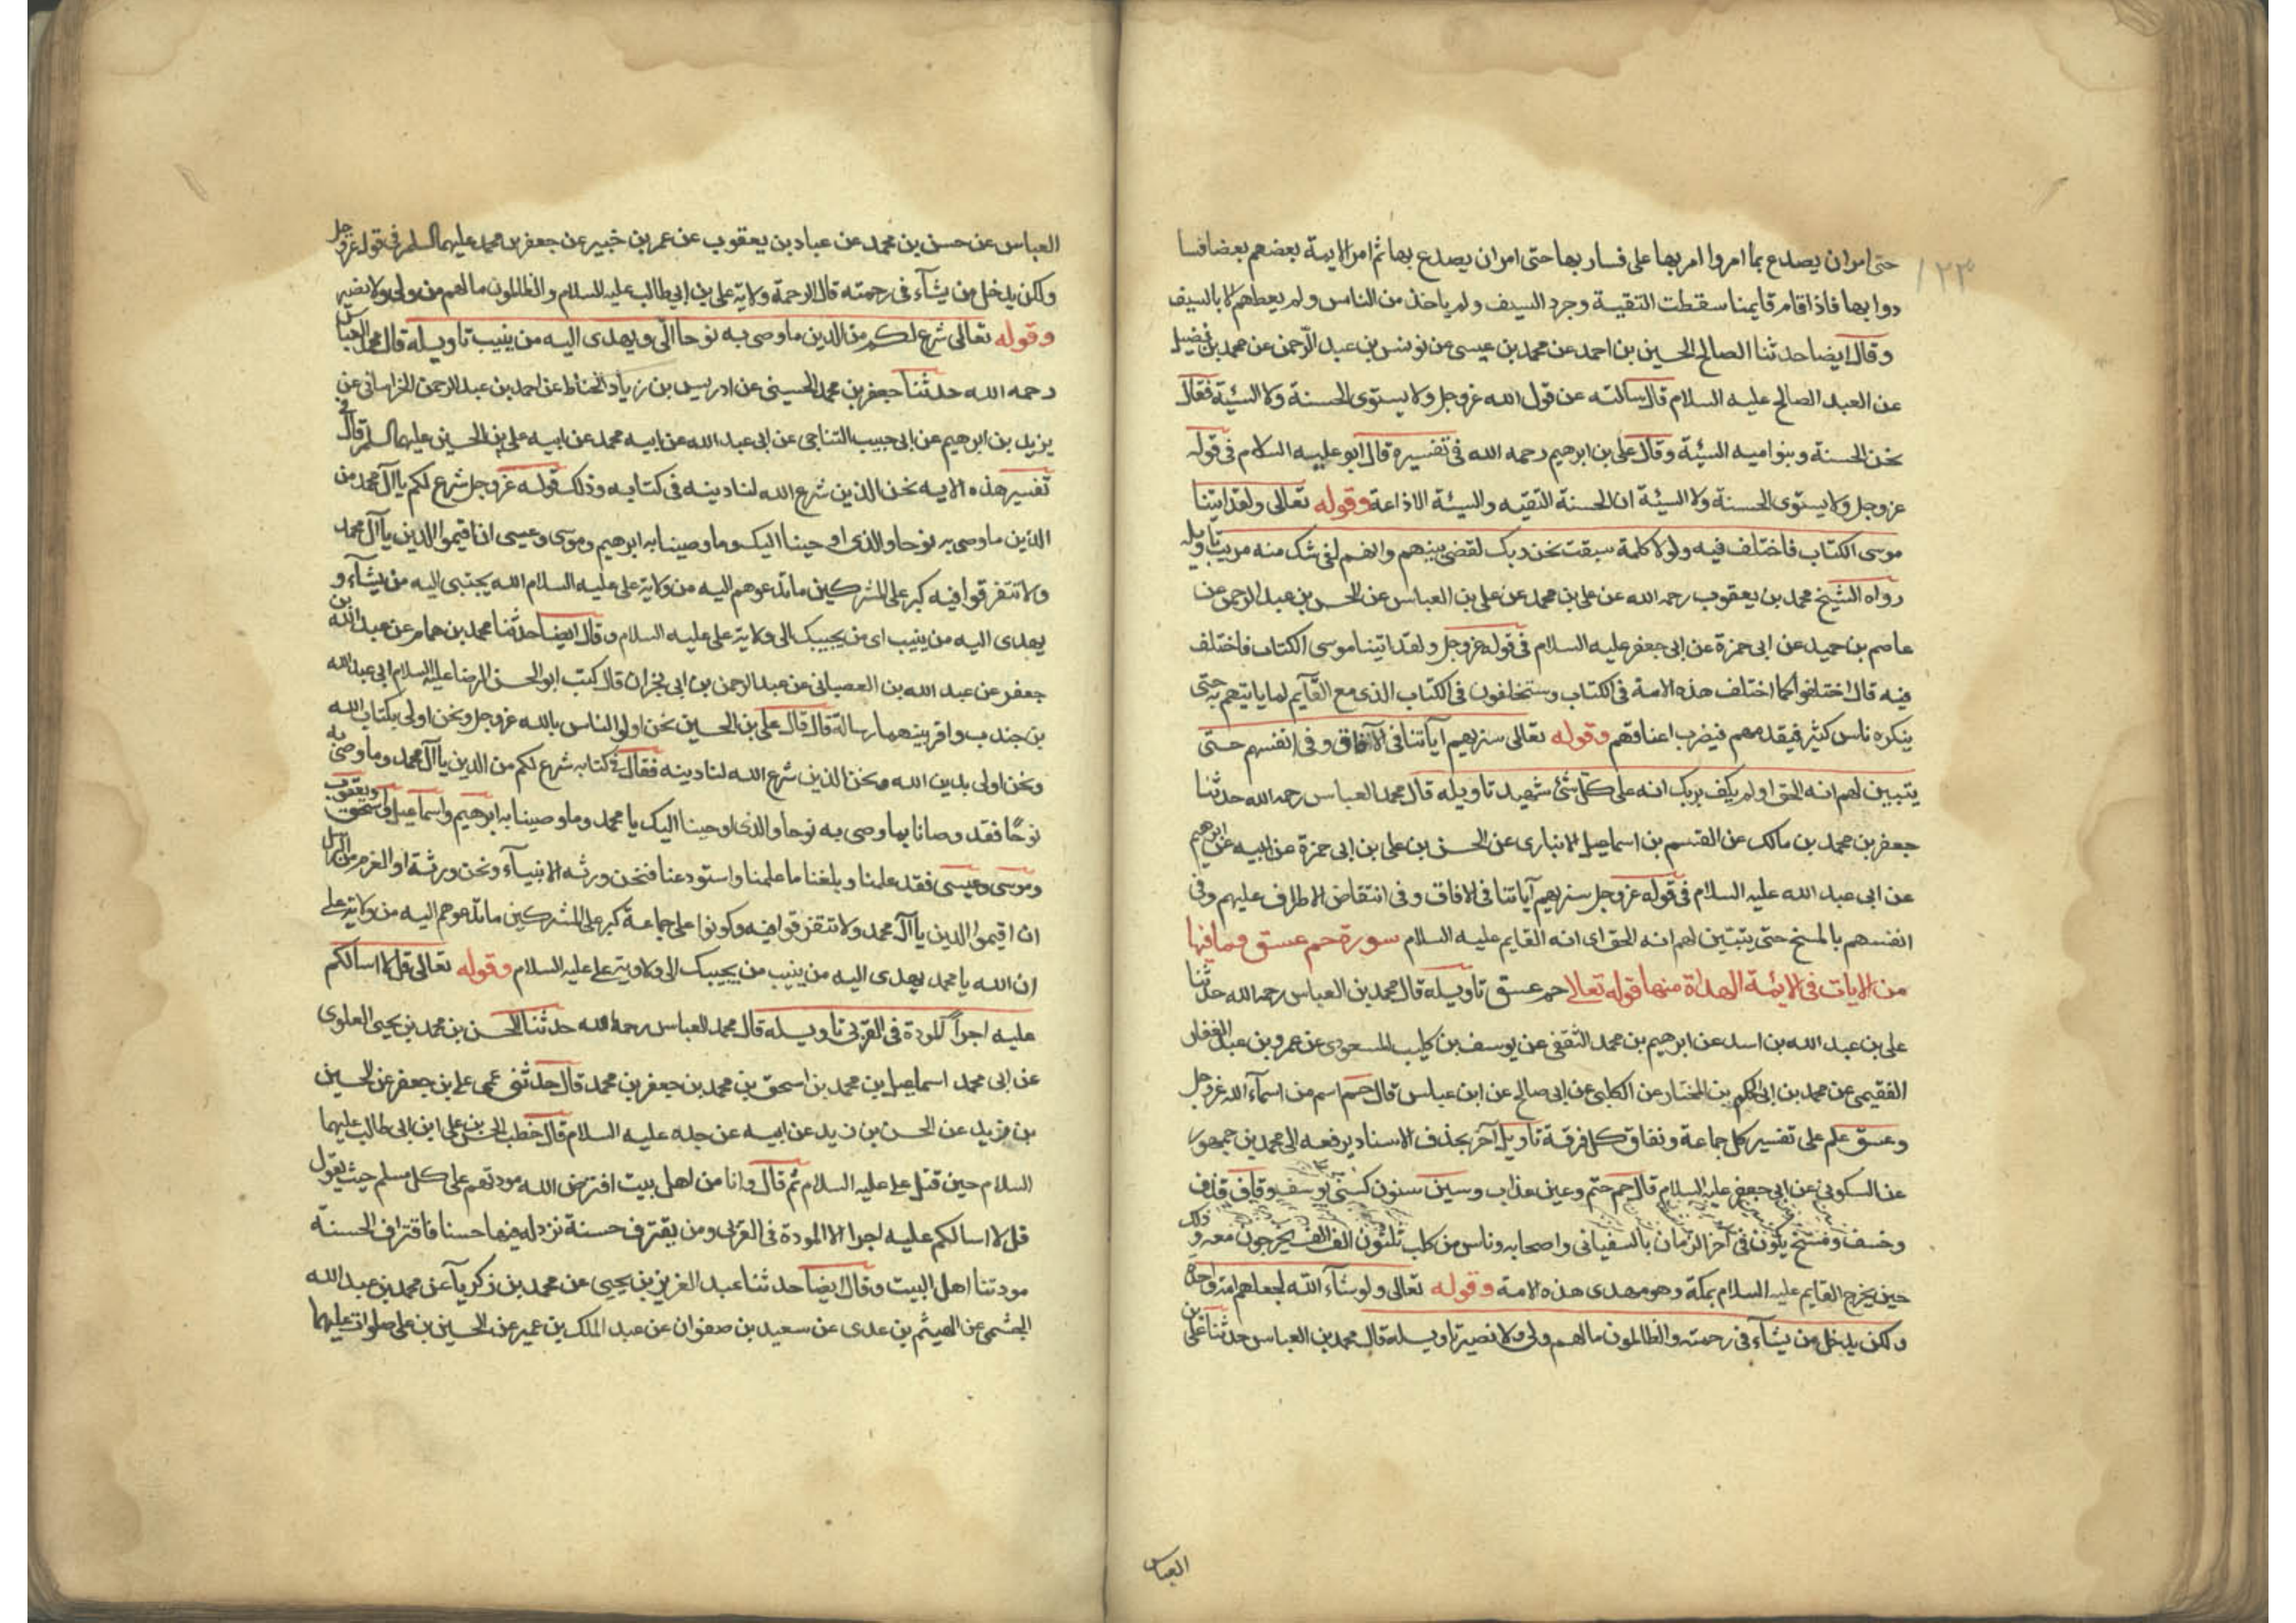 ١٢٣
حتى امر ان يصدع بما امروا امر بها على فسار بها حتى امر ان يصدع بها ثم امر الايمة بعضهم بعضا فسا
دوا بها فاذا قام قايمنا سقطت التقية وجرد السيف ولم ياخذ من الناس ولم يعطهم الا بالسيف
وقال ايضا حدثنا الصالح الحسين بن احمد عن محمد بن عيسى عن يونس بن عبد الرحمن عن محمد بن فضيل
عن العبد الصالح عليه السلام قال سالته عن قول الله عز وجل ولا يستوى الحسنة ولا السيئة فقال
نحن الحسنة وبنوا ميه السيئة وقال على بن ابرهيم رحمه الله فى تفسيره قال ابو عليه السلام فى قوله
عز وجل ولا يستوى الحسنة ولا السيئة ان الحسنة التقيه والسيئة الاذاعة وقوله تعالى ولقد اتينا
موسى الكتاب فاختلف فيه ولولا كلمة سبقت من ربك لقضى بينهم وانهم لفى شك منه مريب تاويله
رواه الشيخ محمد بن يعقوب رحمه الله عن على بن محمد عن على بن العباس عن الحسن بن عبد الرحمن عن
عاصم بن حميد عن ابى حمزة عن ابى جعفر عليه السلام فى قوله عز وجل ولقد اتينا موسى الكتاب فاختلف
فيه قال اختلفوا كما اختلف هذه الامة فى الكتاب وستخلفون فى الكتاب الذى مع القآيم لما ياتيهم به حتى
ينكره ناس كثير فيقدمهم فيضرب اعناقهم وقوله تعالى سنريهم آياتنا فى الآفاق وفى انفسهم حتى
يتبين لهم انه الحق اولم يكف بربك انه على كل شئ شهيد تاويله قال محمد العباس رحمه الله حدثنا
جعفر بن محمد بن مالك عن القسم بن اسماعيل الانبارى عن الحسن بن على بن ابى حمزة عن ابيه عن ابرهيم
عن ابى عبد الله عليه السلام فى قوله عز وجل سنريهم آياتنا فى الافاق وفى انتقاض الاطراف عليهم وفى
انفسهم بالمسخ حتى يتبين لهم انه الحق اى انه القايم عليه السلام سورة حم عسق وما فيها
من الايات فى الايئمة الهداة منها قوله تعالا حم عسق تاويله قال محمد بن العباس رحمه الله حدثنا
على بن عبد الله بن اسد عن ابرهيم بن محمد الثقفى عن يوسف بن كليب المسعودى عن عمرو بن عبد الغفار
الفقيمى عن محمد بن ابى الحكم بن المختار عن الكلبى عن ابى صالح عن ابن عباس قال حم اسم من اسمآء الله عز وجل
وعسق علم على تفسير كل جماعة ونفاق كل فرقة تاويل آخر بحذف الاسناد يرفعه الى محمد بن جمهور
عن السكونى عن ابى جعفر عليه السلام قال حم حتم وعين عذاب وسين سنون كسنى يوسف وقاف قذف
وخسف ومسخ يكون فى آخر الزمان بالسفيانى واصحابه وناس من كلب ثلثون الف الف يخرجون معه وذلك
حين يخرج القايم عليه السلام بمكة وهو مهدى هذه الامة وقوله تعالى ولو شآء الله لجعلهم امة واحدة
ولكن يدخل من يشآء فى رحمته والظالمون مالهم ولى ولا نصير تاويله قال محمد بن العباس حدثنا على بن
العباس
العباس عن حسن بن محمد عن عباد بن يعقوب عن عمر بن خبير عن جعفر بن محمد عليهما السلم فى قوله عز وجل
ولكن يدخل من يشآء فى رحمته قال الرحمة ولاية على بن ابى طالب عليه السلام والظالمون مالهم من ولى ولا نصير
وقوله تعالى شرع لكم من الدين ما وصى به نوحا الى ويهدى اليه من ينيب تاويله قال محمد العباس
رحمه الله حدثنا جعفر بن محمد الحسينى عن ادريس بن زياد الحناط عن احمد بن عبد الرحمن الخراسانى عن
يزيد بن ابرهيم عن ابى حبيب التناجى عن ابى عبد الله عن ابيه محمد عن ابيه على بن الحسين عليهما السلم قال فى
تفسير هذه الايه نحن الذين شرع الله لنا دينه فى كتابه وذلك قوله عز وجل شرع لكم يا آل محمد من
الدين ما وصى به نوحا والذى اوحينا اليك وما وصينا به ابرهيم وموسى وعيسى ان اقيموا الدين يا آل محمد
ولا تتفرقوا فيه كبر على المشركين ما تدعوهم اليه من ولاية على عليه السلام الله يجتبى اليه من يشآء و
يهدى اليه من ينيب اى من يجيبك الى ولاية على عليه السلام وقال ايضا حدثنا محمد بن همام عن عبد الله بن
جعفر عن عبد الله بن العصبانى عن عبد الرحمن بن ابى نجران قال كتب ابو الحسن الرضا عليه السلام ابى عبد الله
بن جندب واقرينهما رسالة قال قال على بن الحسين نحن اولى الناس بالله عز وجل ونحن اولى بكتاب الله
ونحن اولى بدين الله ونحن الذين شرع الله لنا دينه فقال فى كتابه شرع لكم من الدين يا آل محمد وما وصى به
نوحًا فقد وصانا بما وصى به نوحا والذى اوحينا اليك يا محمد وما وصينا به ابرهيم واسماعيل واسحق ويعقوب
وموسى وعيسى فقد علمنا وبلغنا ما علمنا واستودعنا فنحن ورثه الانبيآء ونحن ورثة اولى العزم من الرسل
ان اقيموا الدين يا آل محمد ولا تتفرقوا فيه وكونوا على جماعة كبر على المشركين ما تدعوهم اليه من ولاية على
ان الله يا محمد يهدى اليه من ينيب من يجيبك الى ولاوية على عليه السلام وقوله تعالى قل لا اسالكم
عليه اجراً المودة فى القربى تاويله قال محمد العباس رحمه الله حدثنا الحسن بن محمد بن يحيى العلوى
عن ابى محمد اسماعيل بن محمد بن اسحق بن محمد بن جعفر بن محمد قال حدثنى عمى على بن جعفر عن الحسين
بن يزيد عن الحسن بن زيد عن ابيه عن جده عليه السلام قال خطب الحسن بن على ابن ابى طالب عليهما
السلام حين قتل على عليه السلام ثم قال وانا من اهل بيت افترض الله مودتهم على كل مسلم حيث يقول
قل لا اسالكم عليه اجرا الا المودة فى القربى ومن يقترف حسنة نزد له فيها حسنا فاقتراف الحسنة
مودتنا اهل البيت وقال ايضا حدثنا عبد العزيز بن يحيى عن محمد بن زكريآ عن محمد بن عبد الله
الجشمى عن الهيثم بن عدى عن سعيد بن صفوان عن عبد الملك بن عمير عن الحسين بن على صلوات عليهما